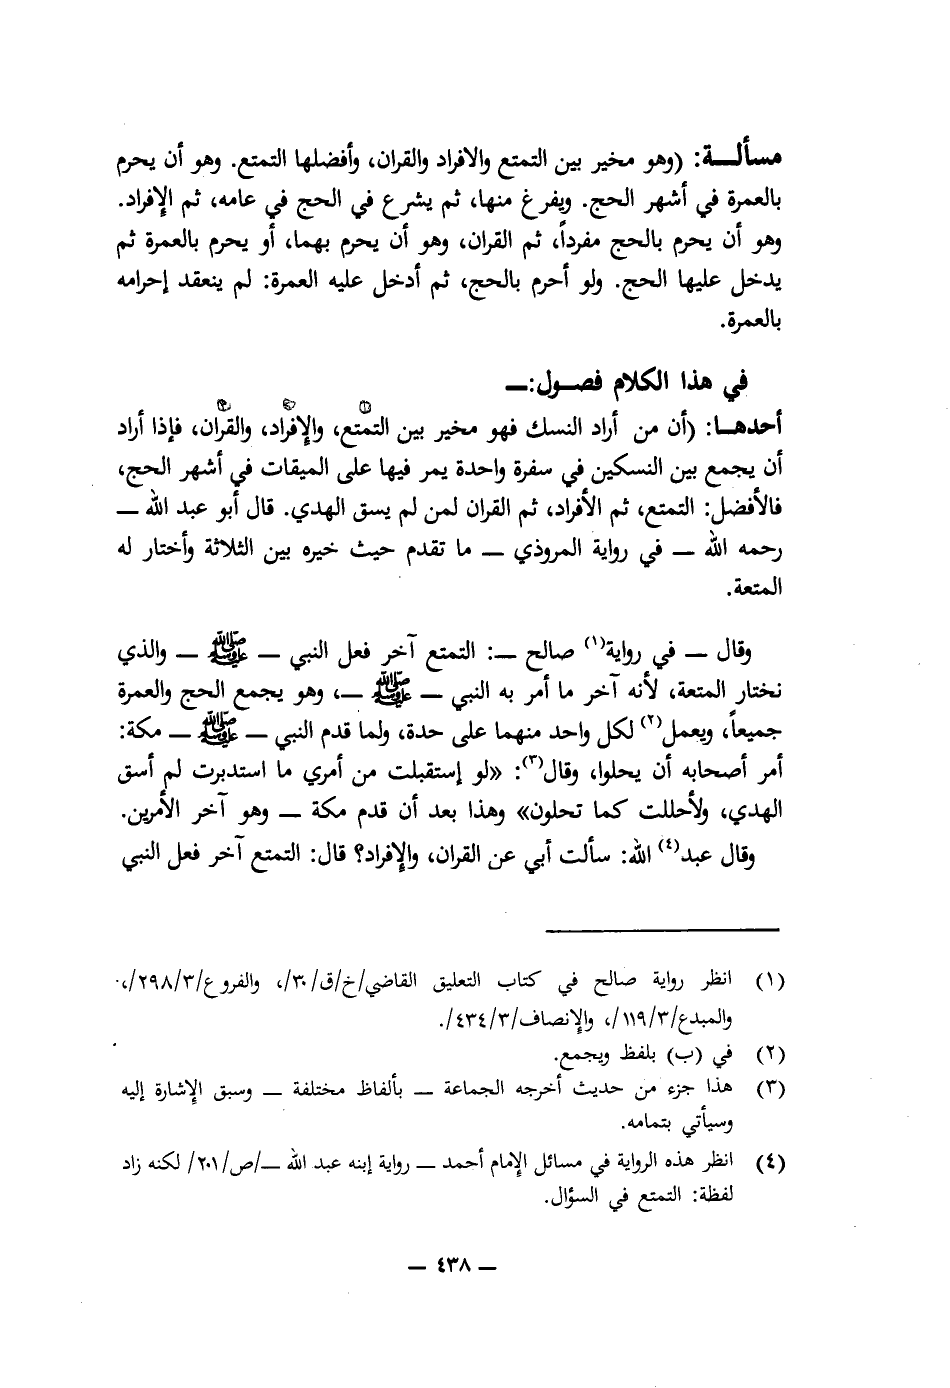 مسألـــة: (وهو مخير بين التمتع والافراد والقران، وأفضلها التمتع. وهو أن يحرم
بالعمرة في أشهر الحج. ويفرغ منها، ثم يشرع في الحج في عامه، ثم الإفراد.
وهو أن يحرم بالحج مفرداً، ثم القران، وهو أن يحرم بهما، أو يحرم بالعمرة ثم
يدخل عليها الحج. ولو أحرم بالحج، ثم أدخل عليه العمرة: لم ينعقد إحرامه
بالعمرة.
في هذا الكلام فصـــول:ـــ
أحدهـــا: (أن من أراد النسك فهو مخير بين التمتع، والإفراد، والقران، فإذا أراد
أن يجمع بين النسكين في سفرة واحدة يمر فيها على الميقات في أشهر الحج،
فالأفضل: التمتع، ثم الأفراد، ثم القران لمن لم يسق الهدي. قال أبو عبد الله ـــ
رحمه الله ـــ في رواية المروذي ـــ ما تقدم حيث خيره بين الثلاثة وأختار له
المتعة.
وقال ـــ في رواية(١) صالح ـــ: التمتع آخر فعل النبي ـــ ﷺ ـــ والذي
نختار المتعة، لأنه آخر ما أمر به النبي ـــ ﷺ ـــ، وهو يجمع الحج والعمرة
جميعاً، ويعمل(٢) لكل واحد منهما على حدة، ولما قدم النبي ـــ ﷺ ـــ مكة:
أمر أصحابه أن يحلوا، وقال(٣): «لو إستقبلت من أمري ما استدبرت لم أسق
الهدي، ولأحللت كما تحلون» وهذا بعد أن قدم مكة ـــ وهو آخر الأمرين.
وقال عبد(٤) الله: سألت أبي عن القران، والإفراد؟ قال: التمتع آخر فعل النبي
(١) انظر رواية صالح في كتاب التعليق القاضي/خ/ق/٣٠/، والفروع/٢٩٨/٣/،
والمبدع/١١٩/٣/، والإنصاف/٤٣٤/٣/.
(٢) في (ب) بلفظ ويجمع.
(٣) هذا جزء من حديث أخرجه الجماعة ـــ بألفاظ مختلفة ـــ وسبق الإشارة إليه
وسيأتي بتمامه.
(٤) انظر هذه الرواية في مسائل الإمام أحمد ـــ رواية إبنه عبد الله ـــ/ص/٢٠١/ لكنه زاد
لفظة: التمتع في السؤال.
ـــ ٤٣٨ ـــ